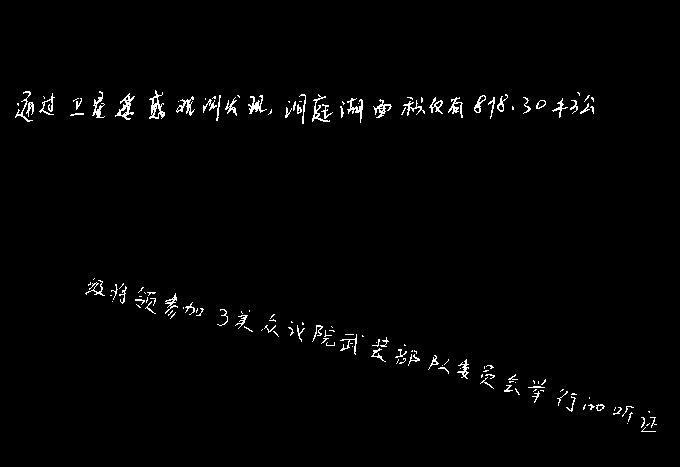 通过卫星遥感观测发现,洞庭湖面积仅有898.30平方公
级将领参加了美众议院武装部队委员会举行的听证